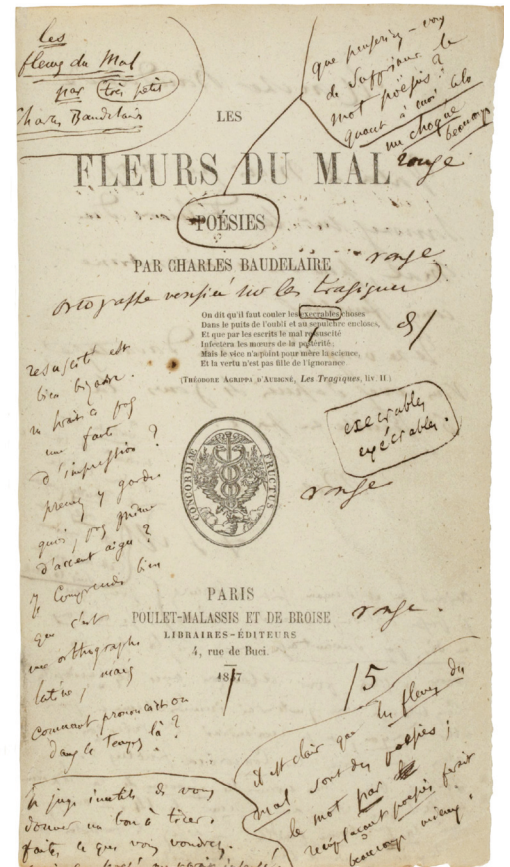 les
fleurs du Mal
par très petit
Charles Baudelaire
que penseriez-vous
de supprimer le
mot poësies ?
quant à moi cela
me choque
beaucoup
rouge
LES
FLEURS DU MAL
POÉSIES
PAR CHARLES BAUDELAIRE
rouge
ortographe vérifiée sur les tragiques
On dit qu'il faut couler les execrables choses
Dans le puits de l'oubli et au sepulchre encloses,
Et que par les escrits le mal resuscité
Infectera les mœurs de la postérité;
Mais le vice n'a point pour mère la science,
Et la vertu n'est pas fille de l'ignorance.
(THÉODORE AGRIPPA D'AUBIGNÉ, Les Tragiques, liv. II)
resuscité est
bien bizarre.
une faute
d'impression ?
prenez y garde
quoi, pas même
d'accent aigu ?
Je comprends bien
que c'est
une orthographe
latine, mais
comment prononçait-on
dans le temps là ?
execrables
exécrables.
CONCORDIÆ FRUCTUS
rouge
PARIS
POULET-MALASSIS ET DE BROISE
rouge.
LIBRAIRES-ÉDITEURS
4, rue de Buci.
1857
5
il est clair que les fleurs du
mal sont des poësies ;
le mot par
remplaçant poësies ferait
beaucoup mieux.
Je juge inutile de vous
donner un bon à tirer.
faites ce que vous voudrez.